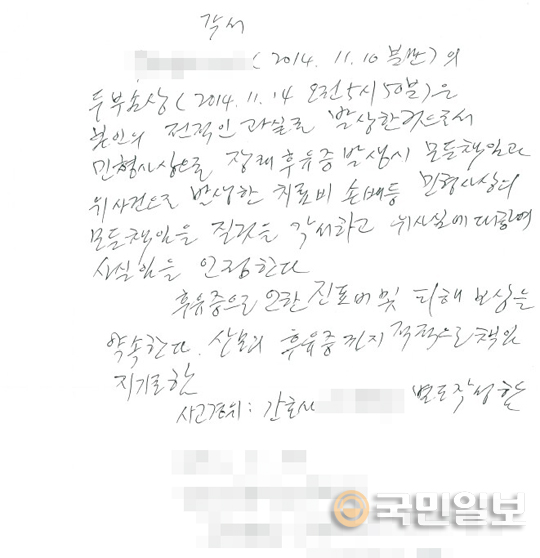 각서
(2014. 11. 10 분만)의
두부손상(2014. 11. 14 오전5시50분)은
본인의 전적인 과실로 발생한것으로서
민형사상으로 장래 후유증 발생시 모든책임과
위사건으로 발생한 치료비 손배등 민형사상의
모든책임을 질것을 각서하고 위사실에 대하여
사실임을 인정한다
후유증으로 인한 진료비 및 피해 보상을
약속한다. 산모의 후유증까지 적극으로 책임
지기로함
사고경위: 간호사 별도작성함
국민일보